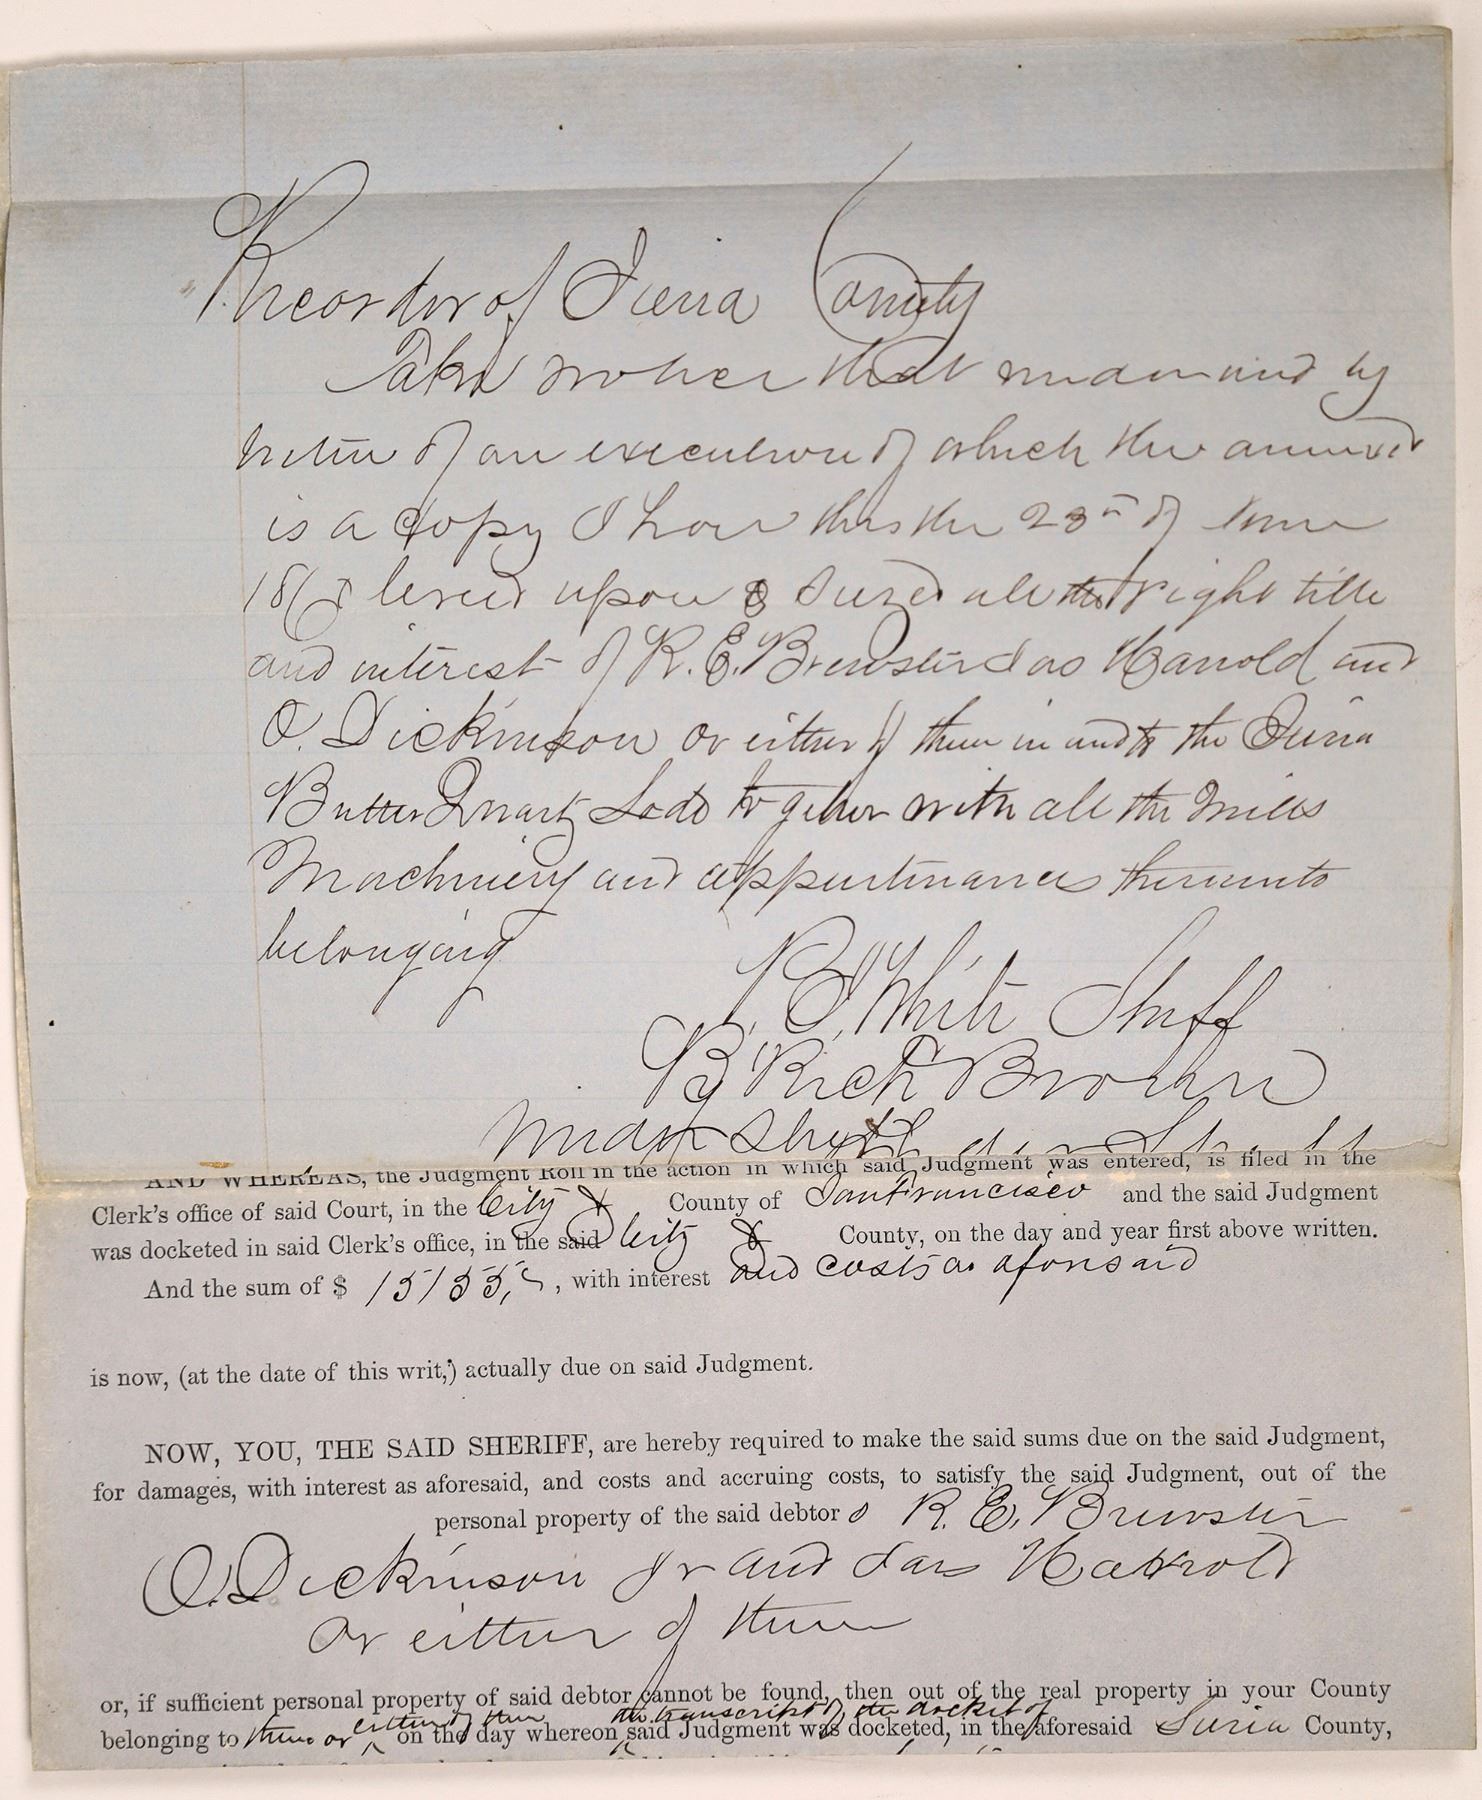 Recorder of Sierra County
Take notice that under and by
virtue of an execution of which the annexed
is a copy I have this the 28th of June
186 levied upon & Seized all the right title
and interest of R. E. Brewster Jas Harrold and
O. Dickinson or either of them in and to the Sierra
Butter Quartz Lode together with all the Mills
Machinery and appurtenances thereunto
belonging
White Shff
By Rich Brown
Under Sheriff
AND WHEREAS, the Judgment Roll in the action in which said Judgment was entered, is filed in the
Clerk's office of said Court, in the City & County of San Francisco and the said Judgment
was docketed in said Clerk's office, in the said City & County, on the day and year first above written.
And the sum of $ , with interest and costs as aforesaid
is now, (at the date of this writ,) actually due on said Judgment.
NOW, YOU, THE SAID SHERIFF, are hereby required to make the said sums due on the said Judgment,
for damages, with interest as aforesaid, and costs and accruing costs, to satisfy the said Judgment, out of the
personal property of the said debtor s R. E. Brewster
O. Dickinson Jr and Jas Harrold
or either of them
or, if sufficient personal property of said debtor cannot be found, then out of the real property in your County
either of them the transcript of the docket of
belonging to them or on the day whereon said Judgment was docketed, in the aforesaid Sierra County,